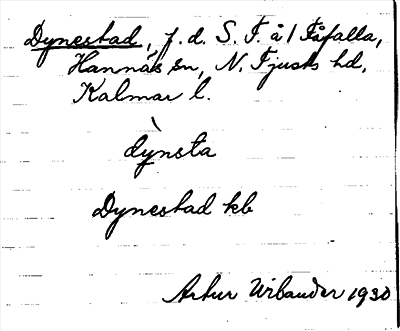 Dynestad, f. d. S. T. å 1 Fåfalla,
Hannäs sn, N. Tjusts hd,
Kalmar l.
`
dynsta
Dynestad kb
Artur Wibander 1930